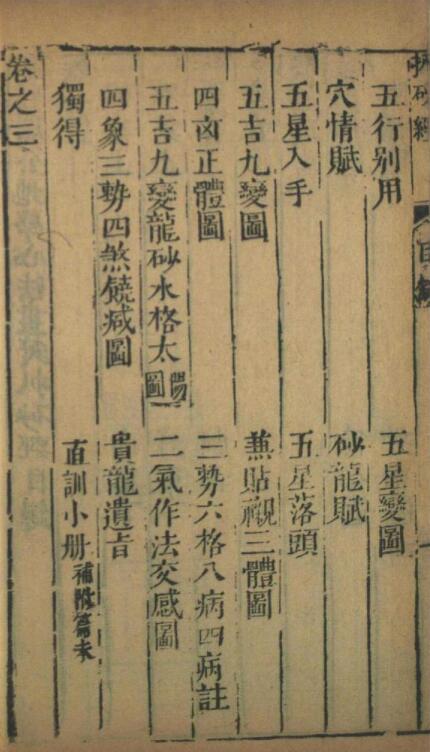 砂經 目
五行别用 五星變圖
穴情賦 砂龍賦
五星入手 五星落頭
五吉九變圖 兼貼襯三體圖
四凶正體圖 三勢六格八病四病註
五吉九變龍砂水格太陽圖 二氣作法交感圖
四象三勢四煞饒减圖 貴龍遺旨
獨得 直訓小册 補附篇末
卷之三